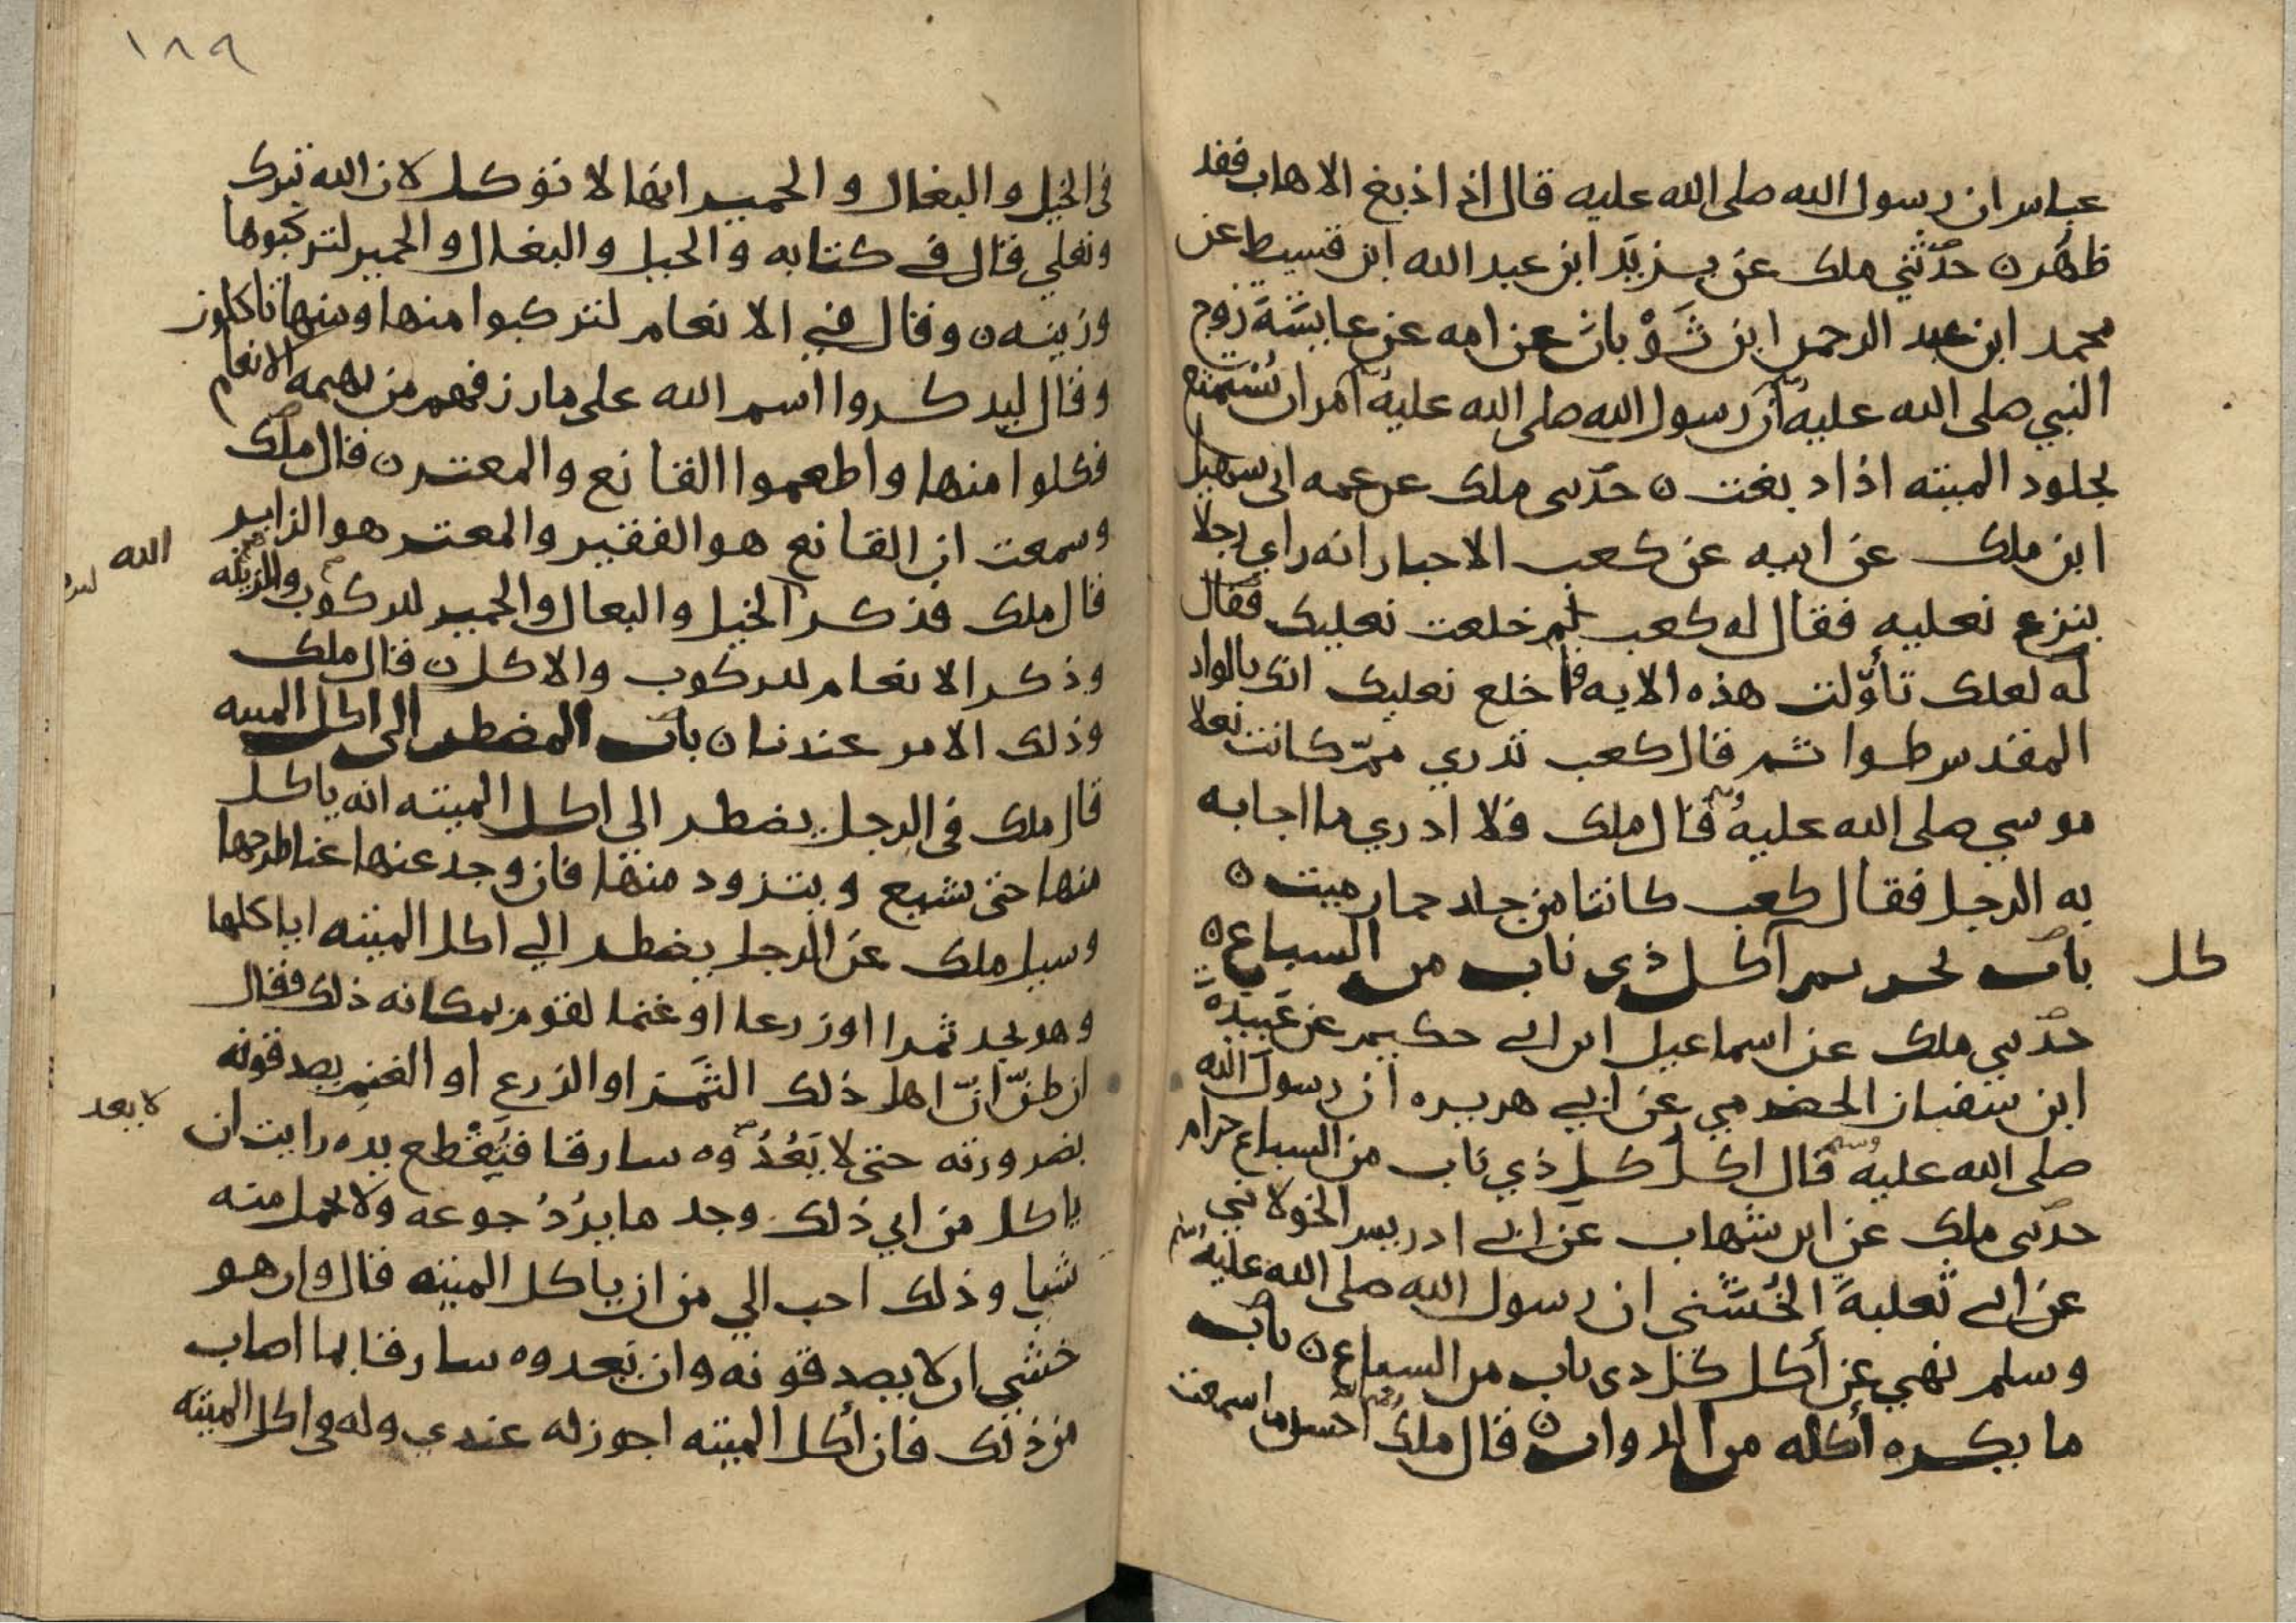 عباس ان رسول الله صلى الله عليه قال اذا دبغ الاهاب فقد
طهر ٥ حدثني ملك عن يزيد ابن عبد الله ابن قسيط عن
محمد ابن عبد الرحمن ابن ثَوْبان عن امه عن عايشة زوج
النبي صلى الله عليه وسلم أن رسول الله صلى الله عليه وسلم امر ان يُستمتع
بجلود الميته اذا دبغت ٥ حدثني ملك عن عمه ابي سهيل
ابن ملك عن ابيه عن كعب الاحبار انه راي رجلا
ينزع نعليه فقال له كعب لم خلعت نعليك فقال
له لعلك تأوّلت هذه الايه فاخلع نعليك انك بالواد
المقدس طوا ثم قال كعب تدري ممّ كانت نعلا
موسي صلى الله عليه وسلم قال ملك فلا ادري ما اجابه
به الرجل فقال كعب كانتا من جلد حمار ميت ٥
باب تحريم اكل ذي ناب من السباع ٥
كل
حدثني ملك عن اسماعيل ابن ابي حكيم عن عَبيدة
ابن سفيان الحضرمي عن ابي هريره ان رسول الله
صلى الله عليه وسلم قال اكل كل ذي ناب من السباع حرام
حدثني ملك عن ابن شهاب عن ابي ادريس الخولاني
عن ابي ثعلبة الخُشَني ان رسول الله صلى الله عليه
وسلم نهي عن أكل كل ذي ناب من السباع ٥ باب
ما يكره أكله من الدواب ٥ قال ملك احسن ما سمعت
١٨٩
في الخيل والبغال والحمير انها لا توكل لان الله تبرك
وتعلي قال في كتابه والخيل والبغال والحمير لتركبوها
وزينه ٥ وقال في الانعام لتركبوا منها ومنها تاكلون
وقال ليذكروا اسم الله على ما رزقهم من بهيمه الانعام
فكلوا منها واطعموا القانع والمعتر ٥ قال ملك
وسمعت ان القانع هو الفقير والمعتر هو الزاير
الله
قال ملك فذكر الخيل والبغال والحمير للركوب والزينه
وذكر الانعام للركوب والاكل ٥ قال ملك
وذلك الامر عندنا ٥ باب المضطر الى اكل الميته
قال ملك في الرجل يضطر الي اكل الميته انه ياكل
منها حتى يشبع ويتزود منها فان وجد عنها غنا طرحها
وسيل ملك عن الرجل يضطر الي اكل الميته اياكلها
وهو يجد ثمرا او زرعا او غنما لقوم بمكانه ذلك فقال
ان ظنّ انّ اهل ذلك الثمَر او الزرع او الغنم يصدقونه
لا يعد
بضرورته حتى لا يَعُدُّوه سارقا فتُقْطع يده رايت ان
ياكل من اي ذلك وجد ما يردُ جوعه ولا يحمل منه
شيا وذلك احب الي من ان ياكل الميته قال وان هو
خشي ان لا يصدقونه وان يعدوه سارقا بما اصاب
من ذلك فان أكل الميته اجوز له عندي وله في اكل الميته